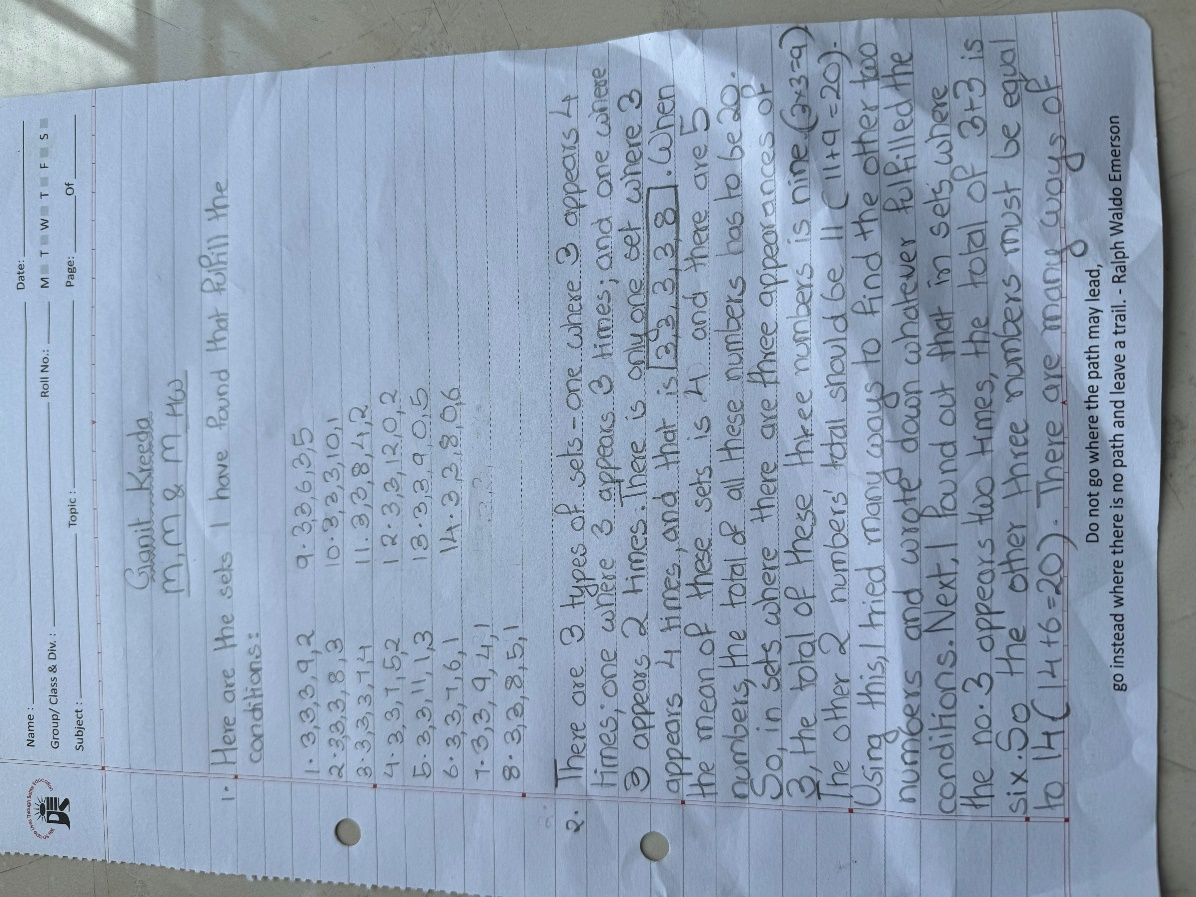 Name : Date:
Group/ Class & Div.: Roll No.: M T W T F S
Subject : Topic : Page: Of
Ganit Kreeda
M, M & M HW
1. Here are the sets I have found that fulfill the
conditions:
1. 3,3,3,9,2
2. 33,3,8,3
3. 3,3,3,7,4
4. 3,3,7,5,2
5. 3,3,11,1,3
6. 3,3,7,6,1
7. 3,3,9,4,1
8. 3,3,8,5,1
9. 3,3,6,3,5
10. 3,3,3,10,1
11. 3,3,8,4,2
12. 3,3,12,0,2
13. 3,3,9,0,5
14. 3,3,8,0,6
2. There are 3 types of sets - one where 3 appears 4
times; one where 3 appears 3 times; and one where
3 appears 2 times. There is only one set where 3
appears 4 times, and that is 3,3,3,3,8. When
the mean of these sets is 4 and there are 5
numbers, the total of all these numbers has to be 20.
So, in sets where there are three appearances of
3, the total of these three numbers is nine.(3×3=9)
The other 2 numbers' total should be 11 (11+9=20).
Using this, I tried many ways to find the other too
numbers and wrote down whatever fulfilled the
conditions. Next, I found out that in sets where
the no. 3 appears two times, the total of 3+3 is
six. So the other three numbers must be equal
to 14 (14+6=20). There are many ways of
Do not go where the path may lead,
go instead where there is no path and leave a trail. - Ralph Waldo Emerson